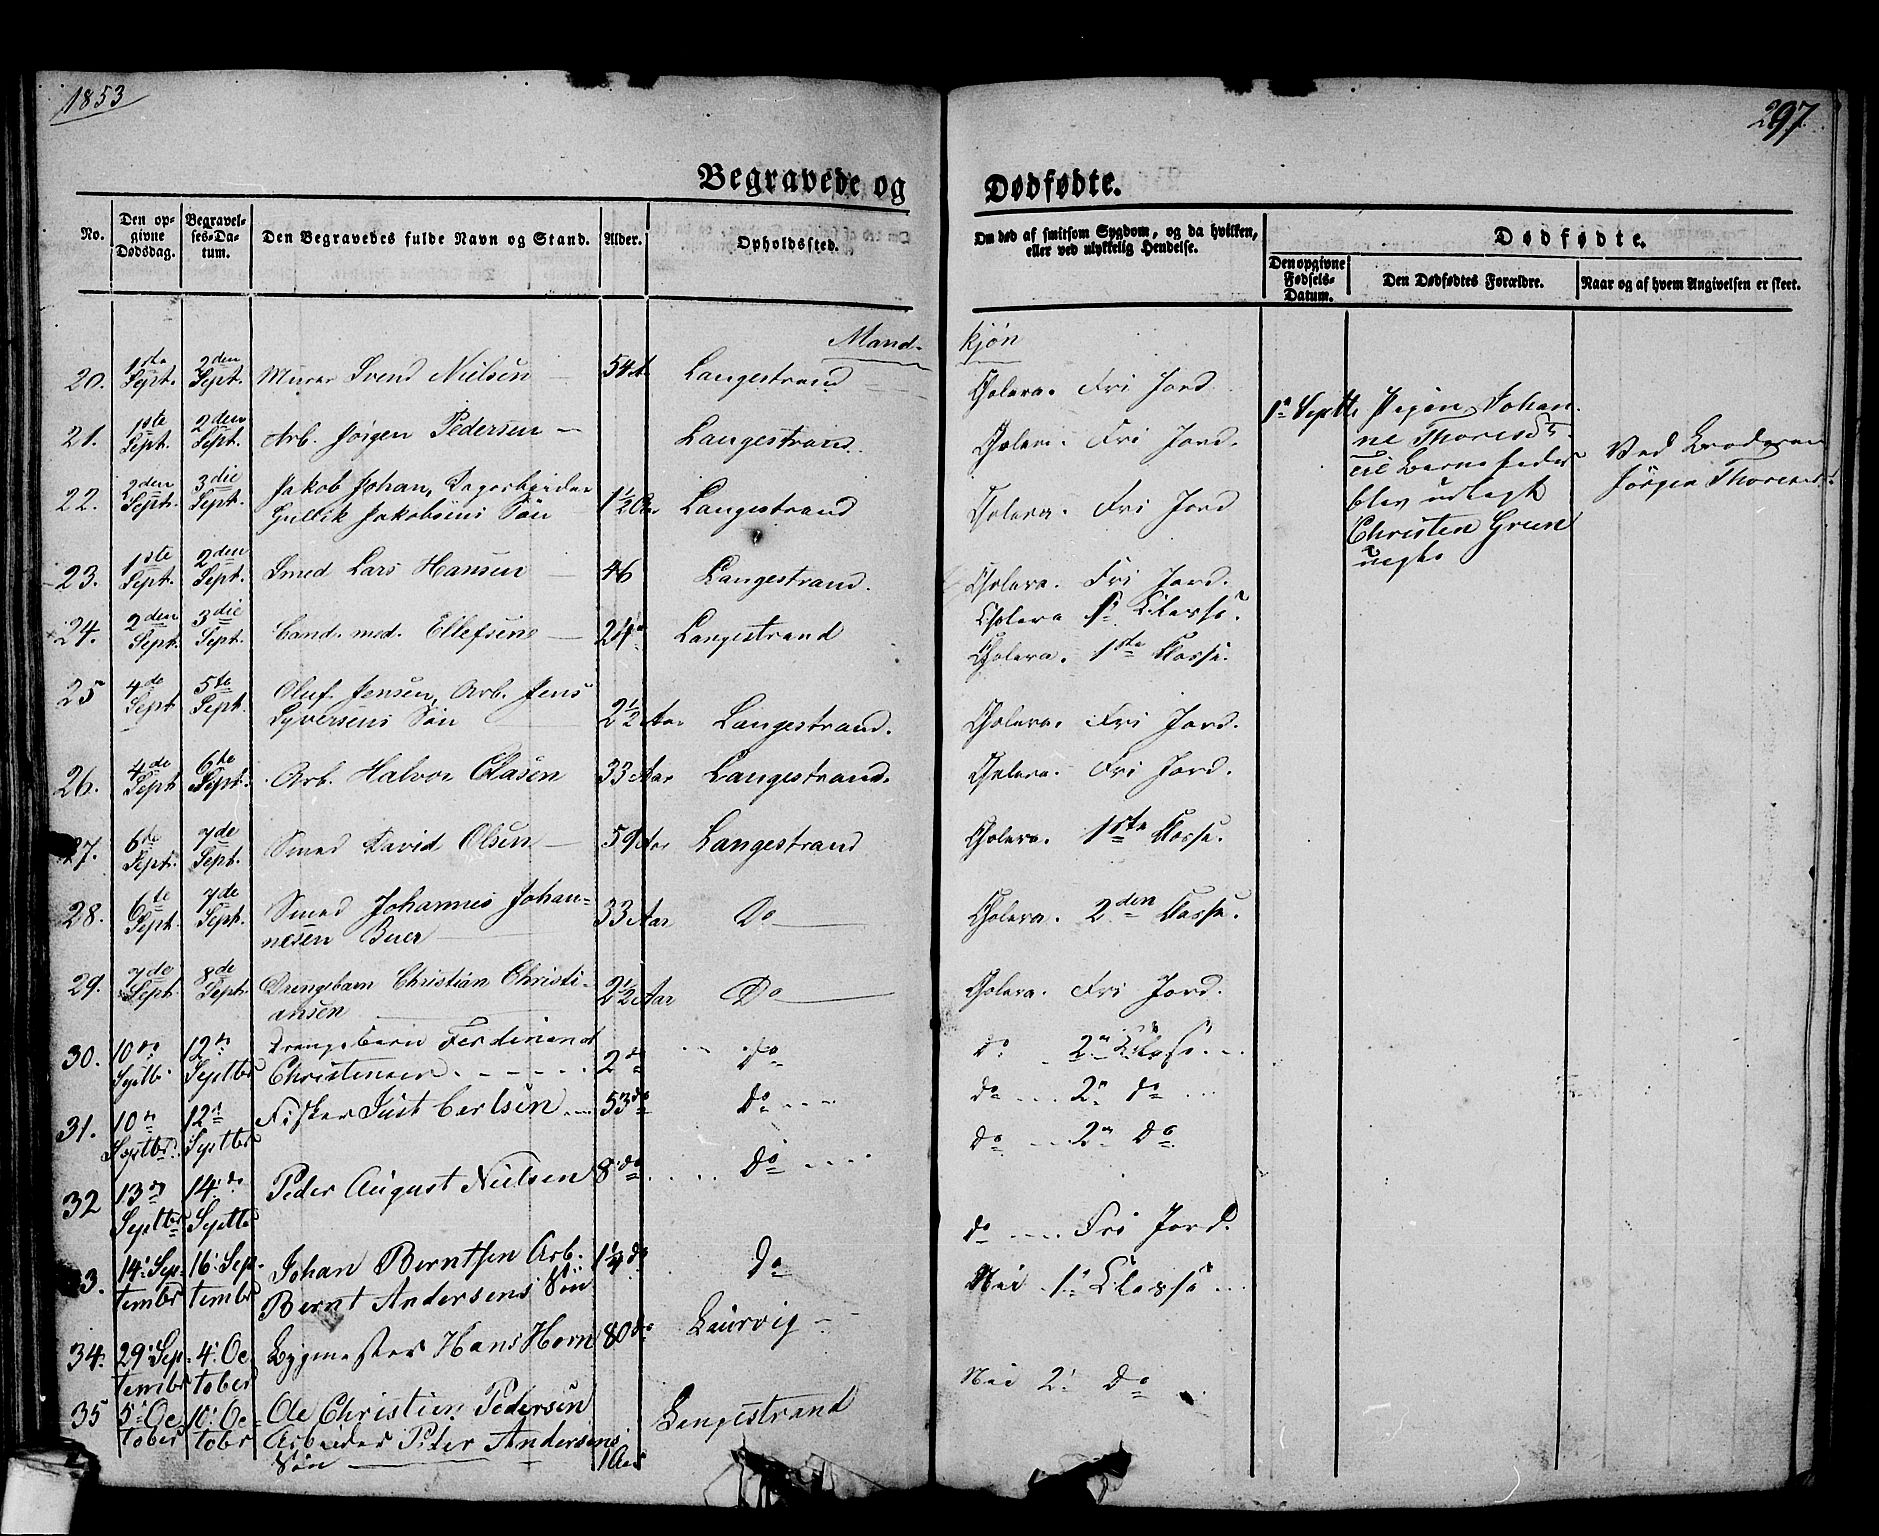 1853
297.
Begravede og Dødfødte.
No.
Den opgivne Dødsdag.
Begravelses-Datum.
Den Begravedes fulde Navn og Stand.
Alder.
Opholdssted.
Om død af smitsom Sygdom, og da hvilken, eller ved ulykkelig Hendelse.
Dødfødte.
Den opgivne Fødsels-Datum.
Den Dødfødtes Forældre.
Naar og af hvem Angivelsen er skeet.
Mandkjøn
20. 1ste Sept. 2den Sept. Murer Svend Nielsen 54 A. Langestrand Cholera. Fri Jord
21. 1ste Sept. 2den Sept. Arb. Jørgen Pedersen Langestrand. Cholera. Fri Jord.
22. 2den Sept. 3die Sept. Jakob Johan, Dagarbeider
Gullik Jakobsens Søn 1 1/2 Aar Langestrand Cholera. Fri Jord
23. 1ste Sept. 2den Sept. Smed Lars Hansen 46 Langestrand. Cholera. Fri Jord.
Cholera 1ē Classe.
24. 2den Sept. 3die Sept. Cand. med. Ellefsen 24 Langestrand Cholera. 1ste Classe.
25 4de Sept 5te Sept. Oluf Jensen, Arb. Jens
Syversens Søn 2 1/2 Aar Langestrand. Cholera. Fri Jord.
26. 4de Sept 6te Sept. Arb. Halvor Olasen 33 Aar Langestrand. Cholera. Fri Jord.
27. 6te Sept. 7de Sept. Smed David Olsen 59 Aar Langestrand Cholera. 1ste Classe.
28. 6te Sept. 7de Sept. Smed Johannes Johan-
nesen Buer 33 Aar Do Cholera. 2den Classe.
29. 7de Sept. 8de Sept. Drengebarn Christian Christi-
ansen 2 1/2 Aar Do Cholera. Fri Jord.
30. 10de Septb. 12te Septbr Drengebarn Ferdinand
Christensen 2 do do do 2n Classe
31. 10n Septbr. 12n Septbr Fisker Just Carlsen 53 do do do 2n do
32 13n Septbr 14de Septbr Peder August Nielsen 8 do Do do 2n Do
33. 14. September 16. September Johan Berntsen Arb.
Bernt Andersens Søn 1 1/4 do Do do Fri Jord.
34. 29. September 4. October Bygmester Hans Horn 80 do Laurvig Nei 1ē Classe
35 5. October 10. October Ole Christian Pedersen
Arbeider Peder Andersens
Søn 1 Aar Langestrand Nei 2. Do
1ē Septbr. Pigen Johan-
ne Thoresdtr.
Til Barnefader
blev udlagt
Christen Green
Ved Broderen
Jørgen Thoresen.